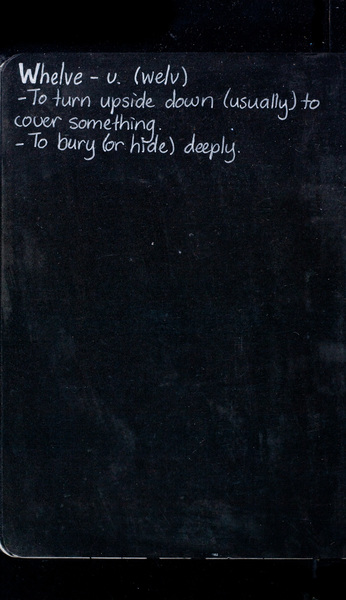 Whelve - v. (welv)
- To turn upside down (usually) to
cover something.
- To bury (or hide) deeply.